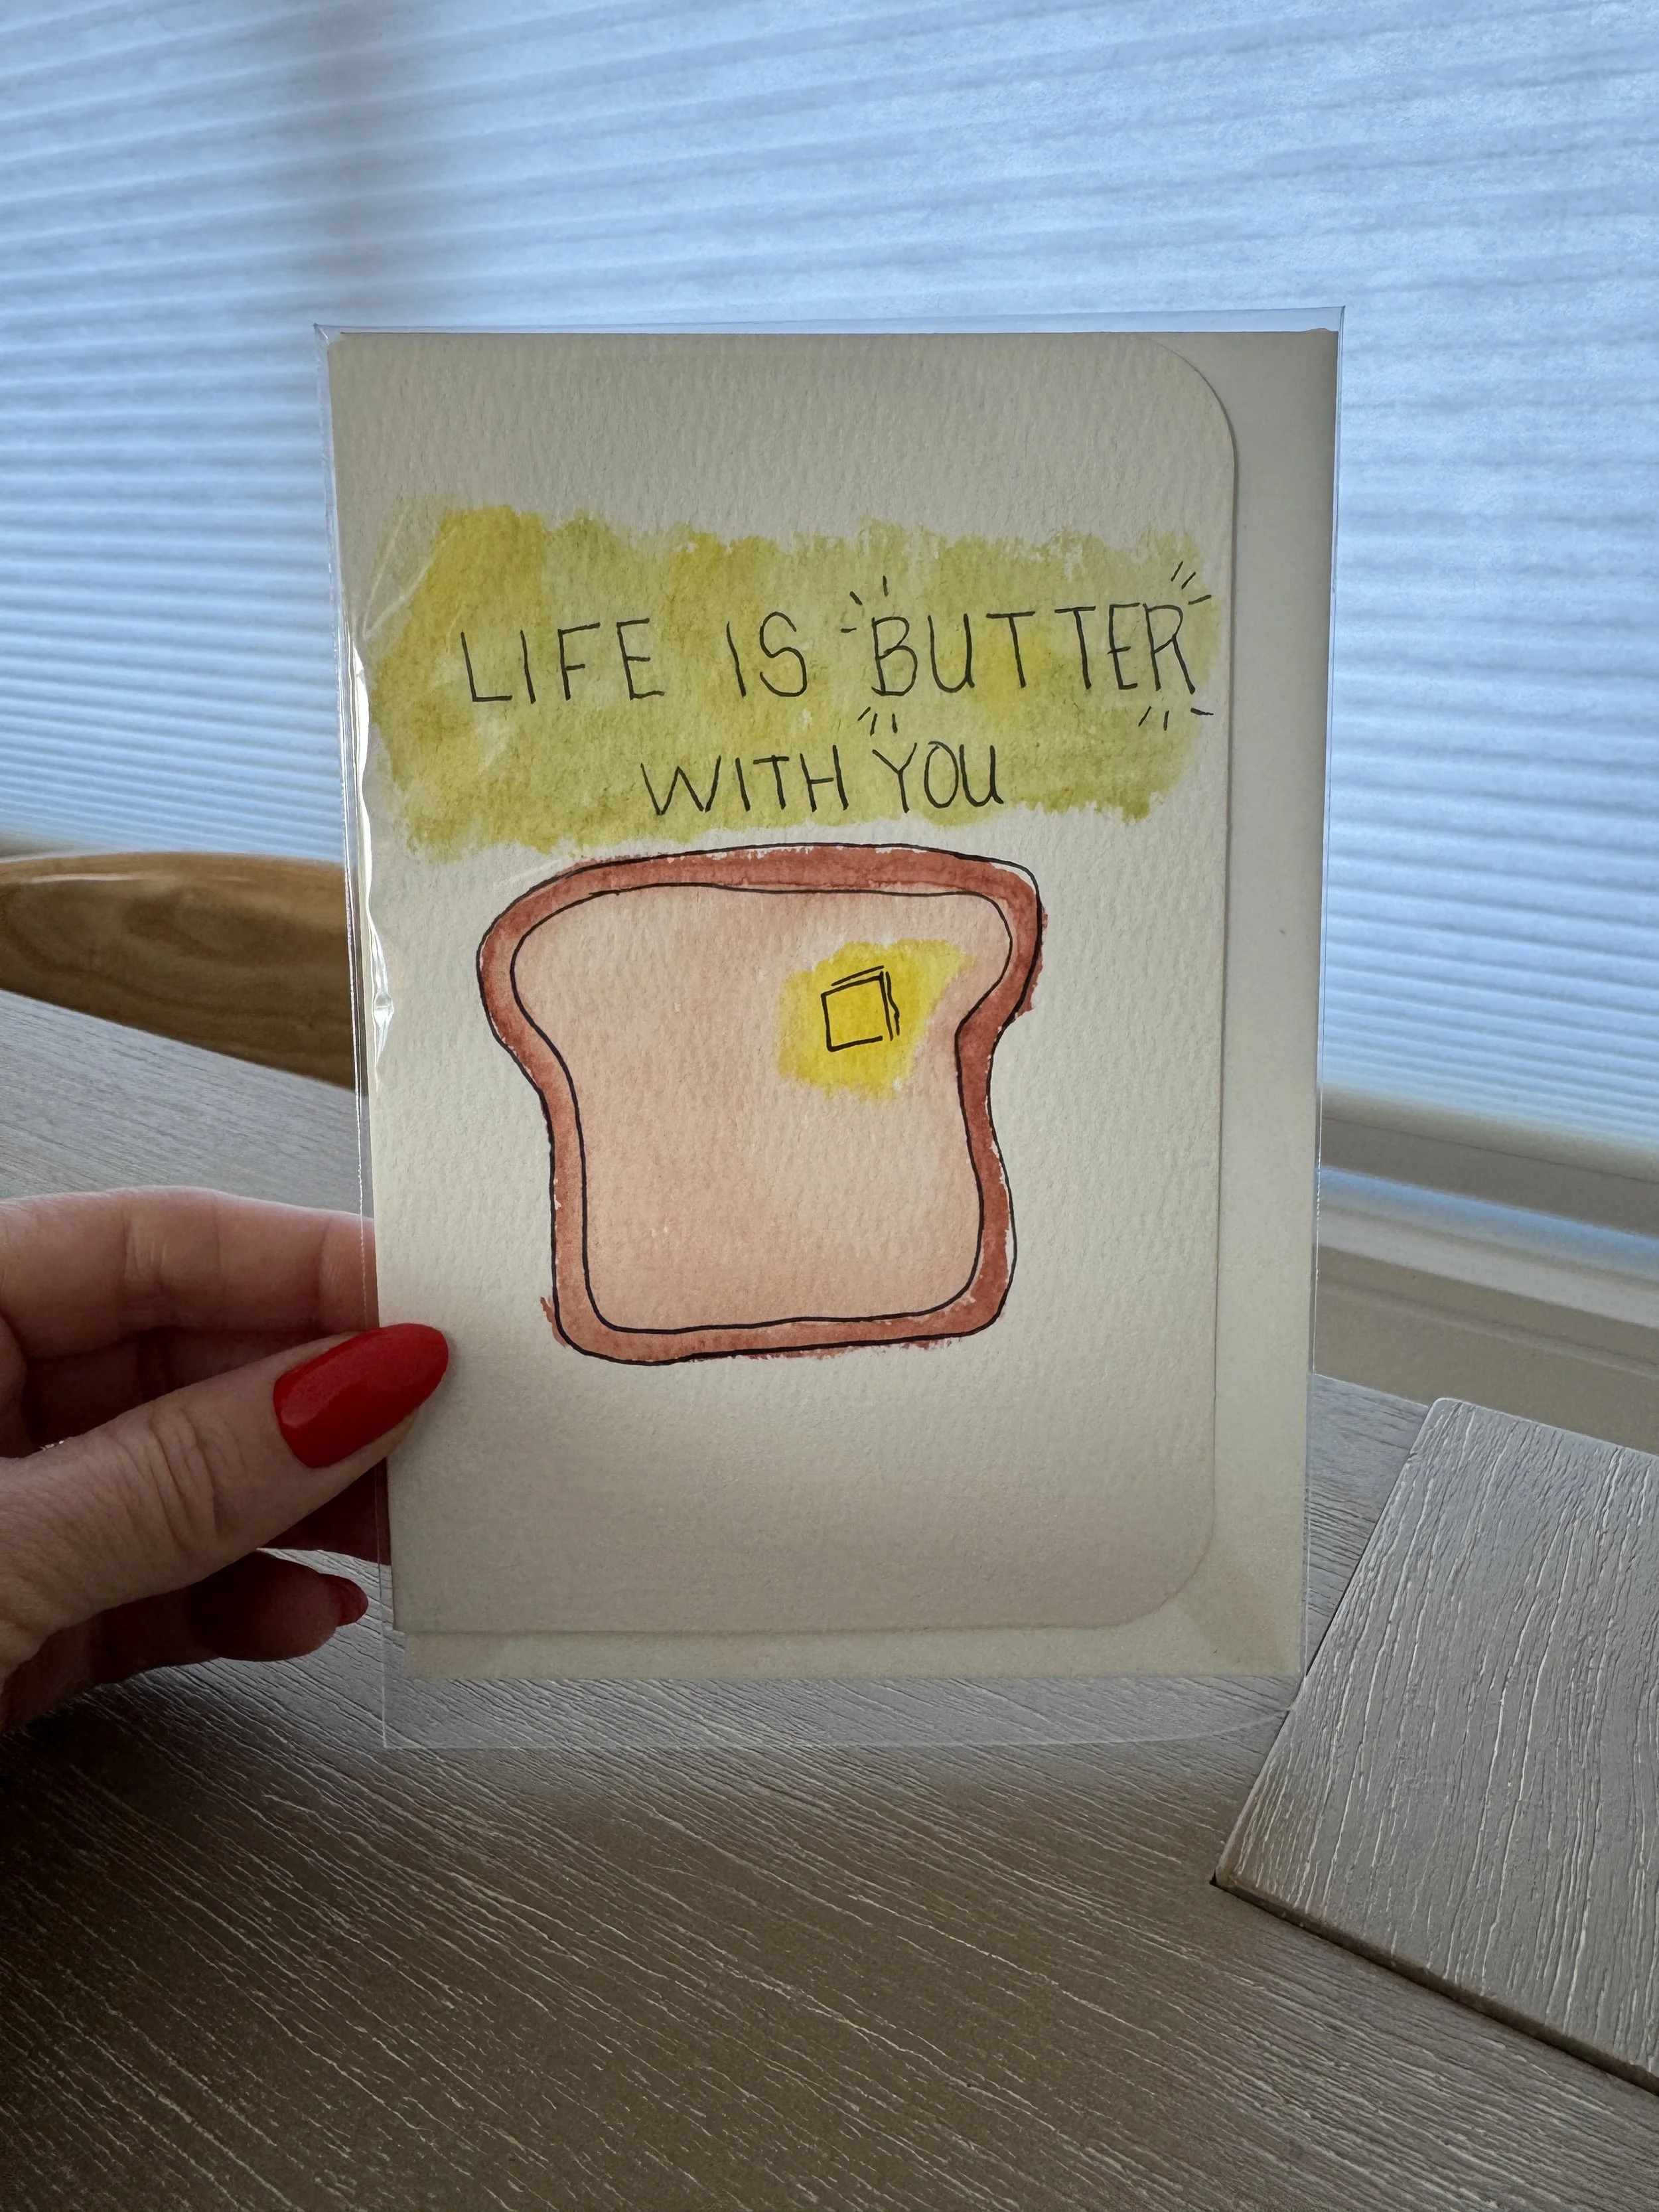 LIFE IS BUTTER
WITH YOU